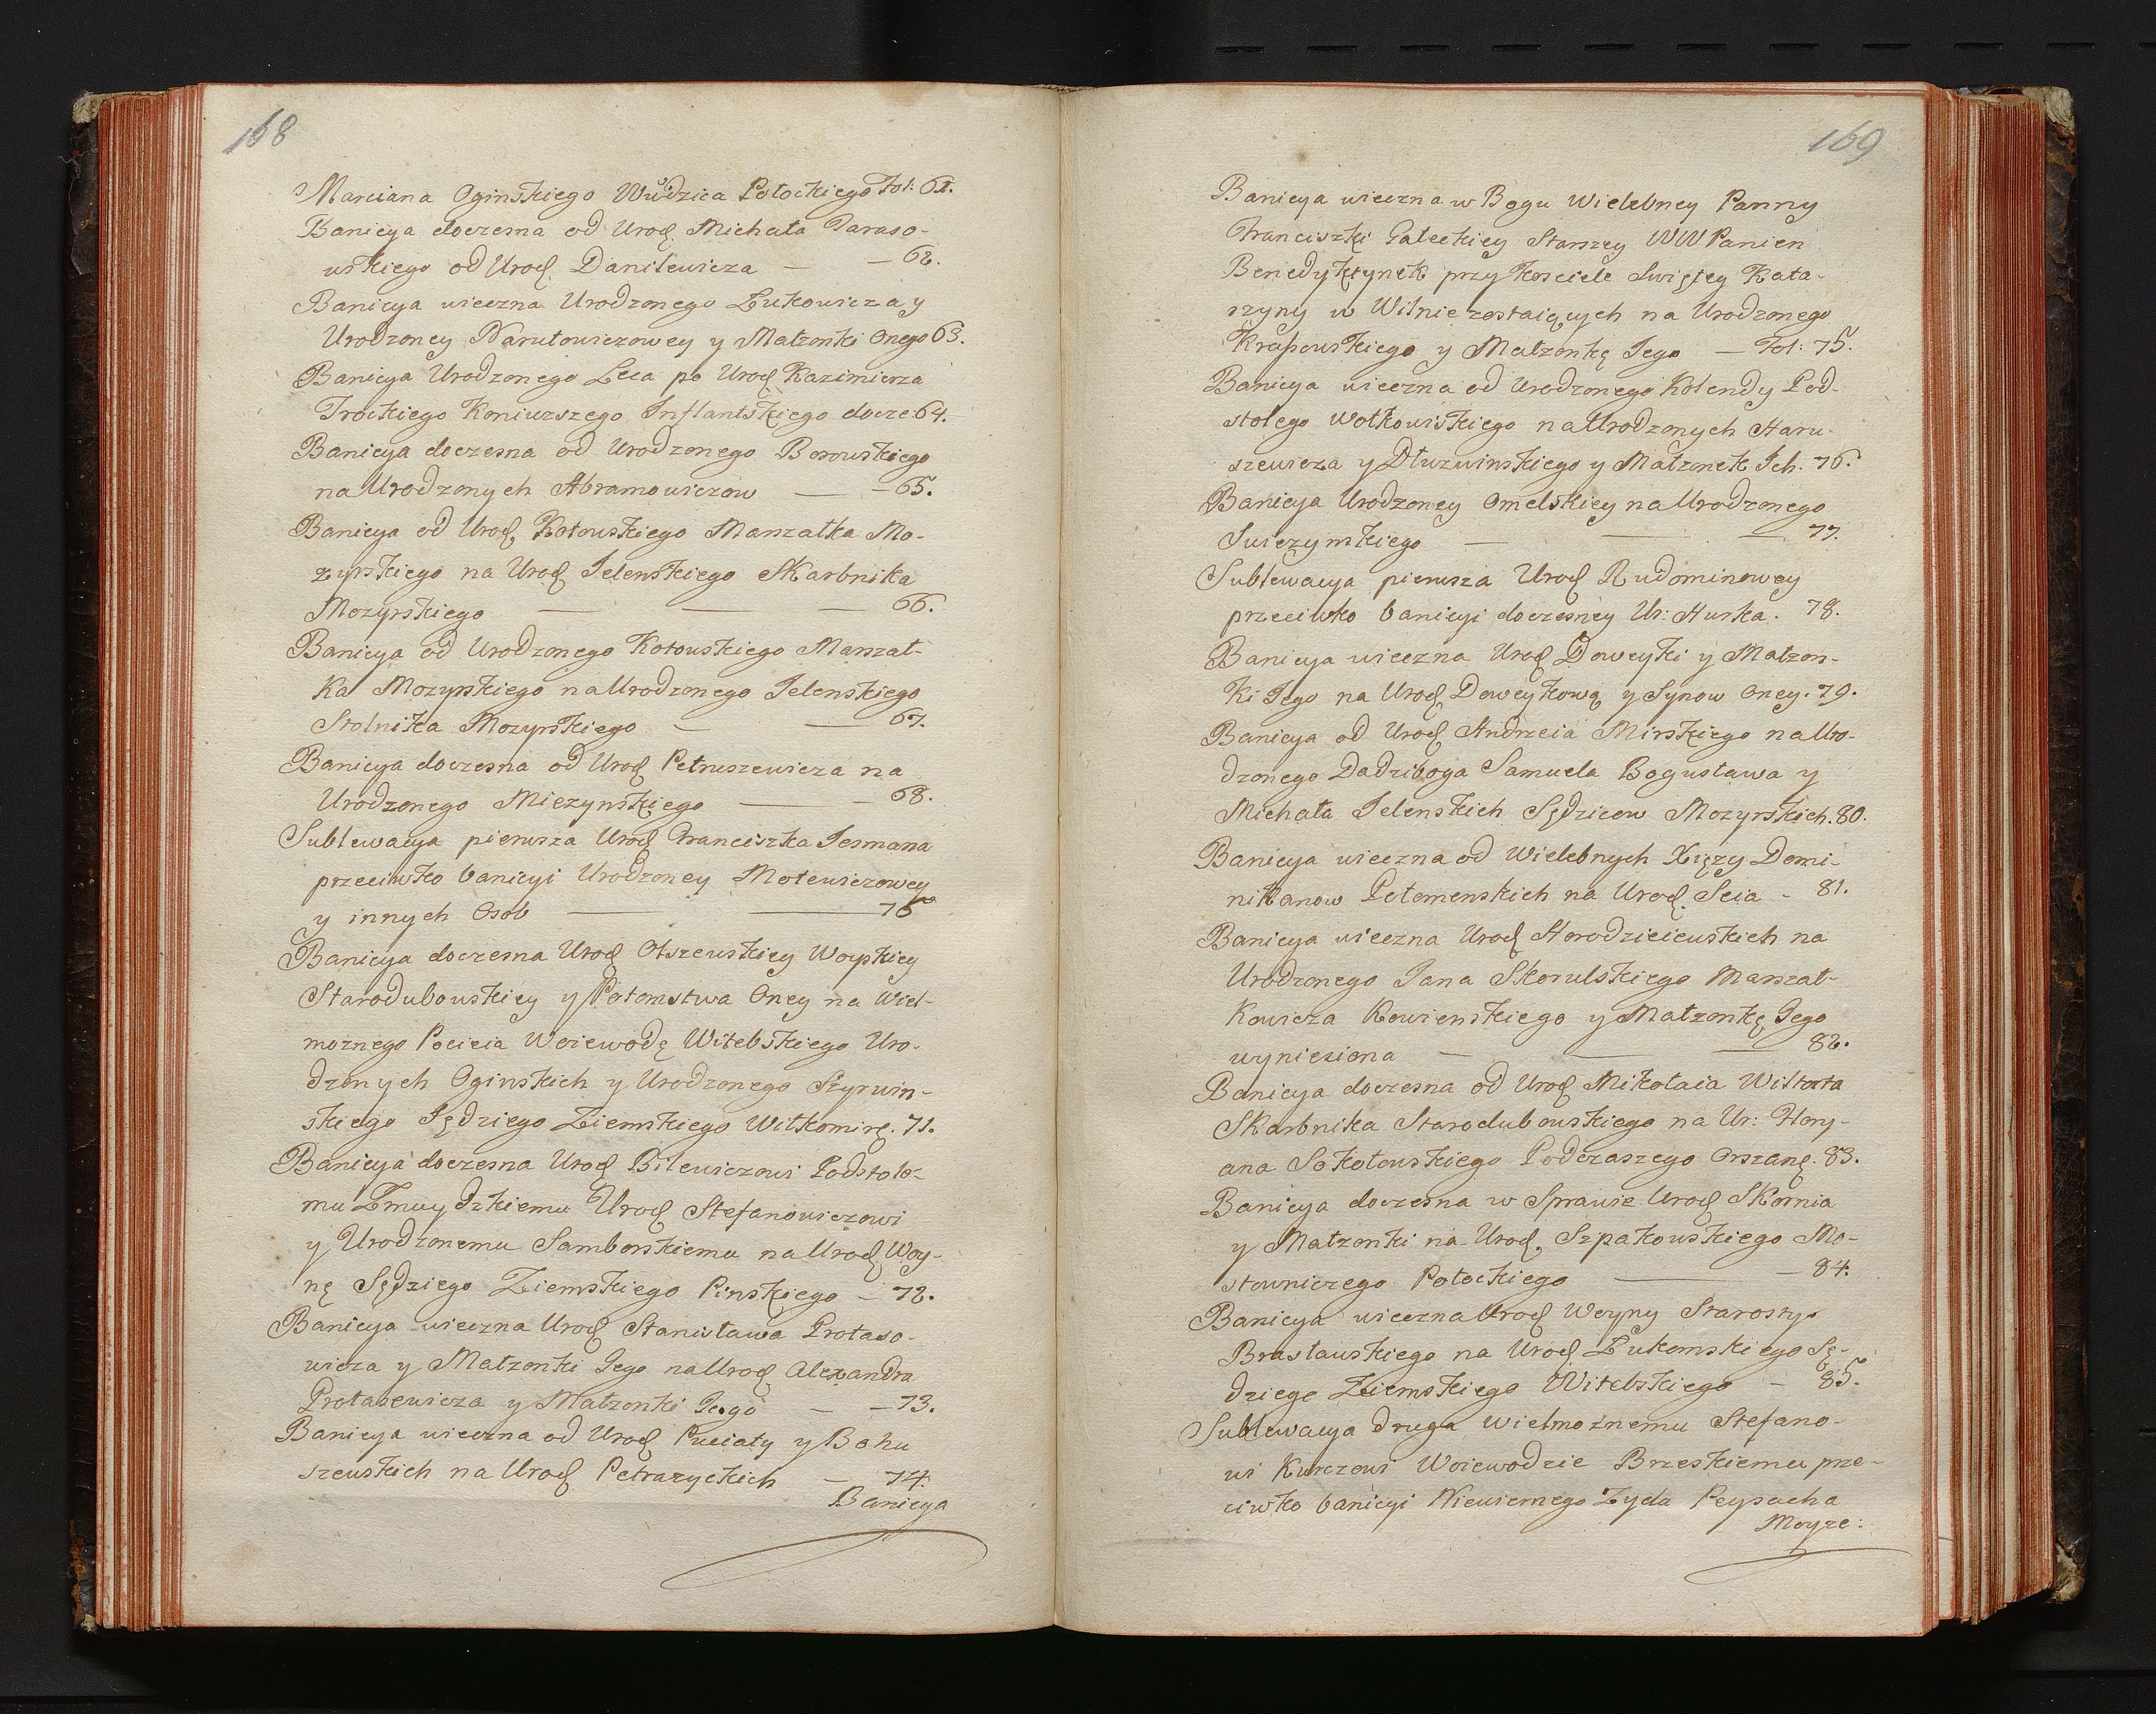 168
Marciana Oginskiego Wdzica Połockiego Fol: 61.
Banicya doczesna od Urod. Michała Taraso-
wskiego od Urod. Danilewicza — — 62.
Banicya wieczna Urodzonego Łukowicza y
Urodzoney Narutowiczowey y Małzonki Onego 63.
Banicya Urodzonego Leca po Urod. Kazimierza
Trockiego Koniuszego Inflantskiego docze: 64.
Banicya doczesna od Urodzonego Borowskiego
na Urodzonych Abramowiczow — — 65.
Banicya od Urod. Kotowskiego Marszałka Mo-
zyrskiego na Urod. Jelenskiego Skarbnika
Mozyrskiego — — — 66.
Banicya od Urodzonego Kotowskiego Marszał-
ka Mozyrskiego na Urodzonego Jelenskiego
Stolnika Mozyrskiego — — 67.
Banicya doczesna od Urod. Petruszewicza na
Urodzonego Miezynskiego — — 68.
Sublewacya pierwsza Urod. Franciszka Jesmana
przeciwko banicyi Urodzoney Molewiczowey
y innych Osob — — 70
Banicya doczesna Urod. Olszewskiey Woyskiey
Starodubowskiey y Potomstwa Oney na Wiel-
możnego Pocieia Woiewodę Witebskiego Uro-
dzonych Oginskich y Urodzonego Szyrwin-
skiego Sędziego Ziemskiego Wiłkomirs. 71.
Banicya doczesna Urod. Bilewiczowi Podstolo-
mu Żmuydzkiemu Urod. Stefanowiczowi
y Urodzonemu Samborskiemu na Urod. Woy-
nę Sędziego Ziemskiego Pinskiego — 72.
Banicya wieczna Urod. Stanisława Protaso-
wicza y Małzonki Jego na Urod. Alexandra
Protasewicza y Małzonki Jego — — 73.
Banicya wieczna od Urod. Puciaty y Bohu
szewskich na Urod. Petrazyckich — 74.
Banicya
169
Banicya wieczna w Bogu Wielebney Panny
Franciszki Galeckiey Starszey WW Panien
Benedyktynek przy Kosciele Swiętey Kata-
rzyny w Wilnie zostaiących na Urodzonego
Krapowskiego y Małzonkę Jego — Fol: 75.
Banicya wieczna od Urodzonego Kolendy Pod-
stolego Wołkowiskiego na Urodzonych Haru-
szewicza y Dłuzwinskiego y Małzonek Jch. 76.
Banicya Urodzoney Omelskiey na Urodzonego
Swiezynskiego — — — 77.
Sublewacya pierwsza Urod. Rudominowey
przeciwko banicyi doczesney Ur: Hurka. 78.
Banicya wieczna Urod. Doweyki y Małzon-
ki Jego na Urod. Doweykową y Synow Oney. 79.
Banicya od Urod. Andrzeia Mirskiego na Uro-
dzonego Dadziboga Samuela Bogusława y
Michała Jelenskich Sędzicow Mozyrskich. 80.
Banicya wieczna od Wielebnych Xięzy Domi-
nikanow Połomenskich na Urod. Seia - 81.
Banicya wieczna Urod. Horodziciewskich na
Urodzonego Jana Skorulskiego Marszał-
kowicza Kowienskiego y Małzonkę Jego
wyniesiona — — — 82.
Banicya doczesna od Urod. Mikołaia Wiltorta
Skarbnika Starodubowskiego na Ur: Flory-
ana Sokołowskiego Podczaszego Orszans. 83.
Banicya doczesna w Sprawie Urod. Skornia
y Małzonki na Urod. Szpakowskiego Mo-
stowniczego Połockiego — — 84.
Banicya wieczna Urod. Woyny Starosty
Brasławskiego na Urod. Łukomskiego Sę-
dziego Ziemskiego Witebskiego — 85.
Sublewacya druga Wielmoznemu Stefano-
wi Kurczowi Woiewodzie Brzeskiemu prze-
ciwko banicyi Niewiernego Zyda Peysacha
Moyze: